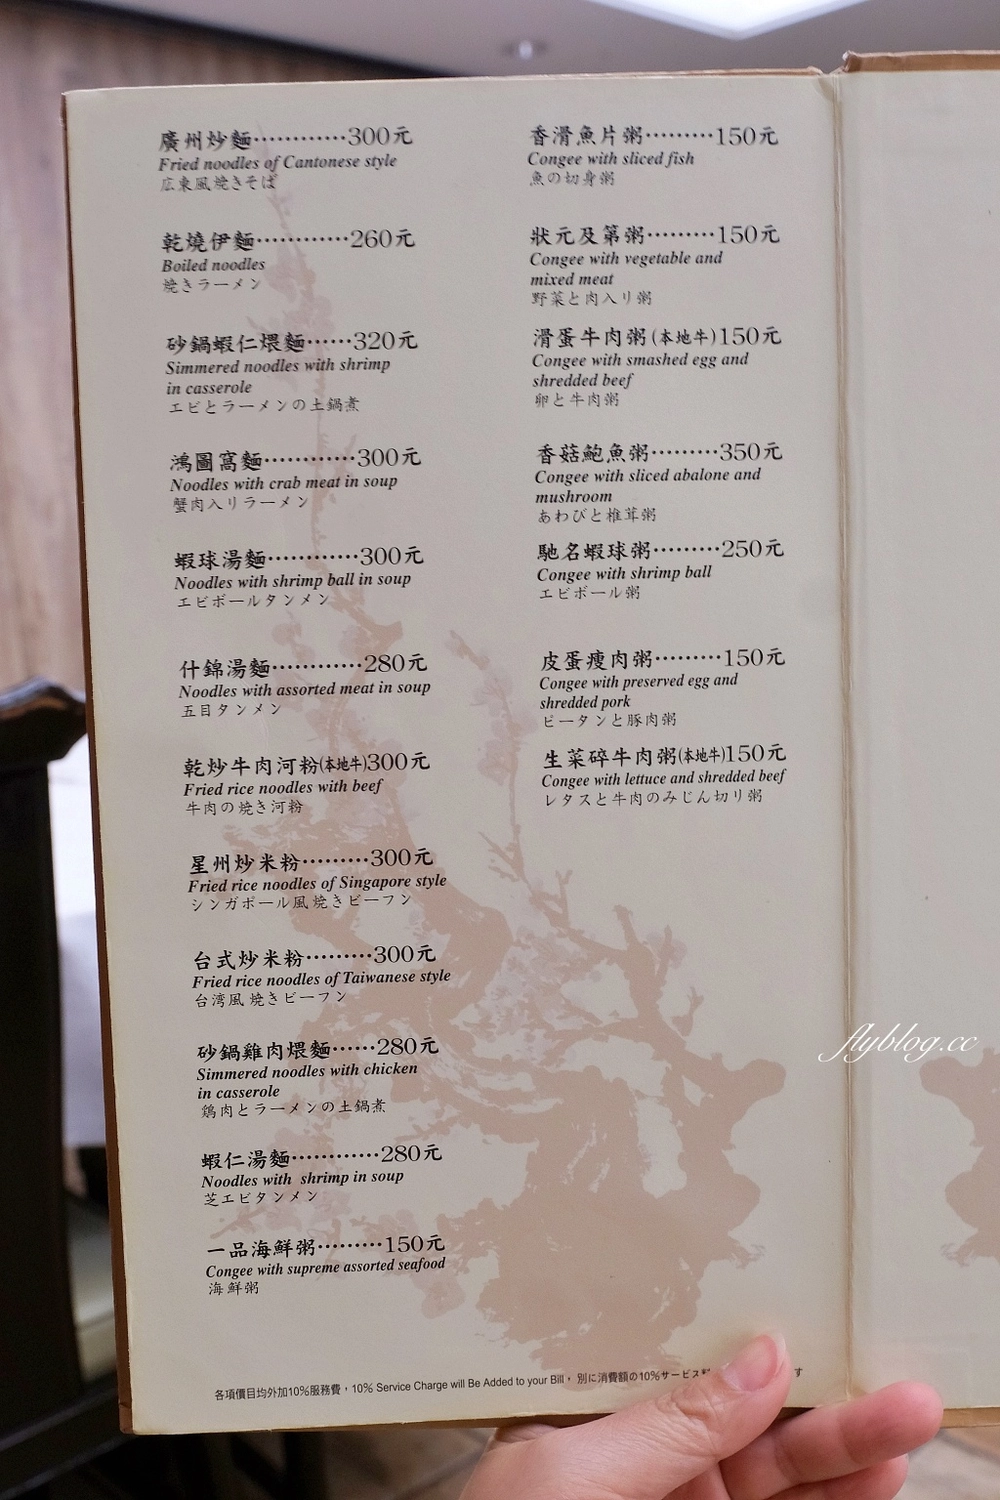 廣州炒麵············300元
Fried noodles of Cantonese style
広東風焼きそば
乾燒伊麵············260元
Boiled noodles
焼きラーメン
砂鍋蝦仁煨麵······320元
Simmered noodles with shrimp
in casserole
エビとラーメンの土鍋煮
鴻圖窩麵············300元
Noodles with crab meat in soup
蟹肉入りラーメン
蝦球湯麵············300元
Noodles with shrimp ball in soup
エビボールタンメン
什錦湯麵············280元
Noodles with assorted meat in soup
五目タンメン
乾炒牛肉河粉(本地牛)300元
Fried rice noodles with beef
牛肉の焼き河粉
星州炒米粉·········300元
Fried rice noodles of Singapore style
シンガポール風焼きビーフン
台式炒米粉·········300元
Fried rice noodles of Taiwanese style
台湾風焼きビーフン
砂鍋雞肉煨麵······280元
Simmered noodles with chicken
in casserole
鶏肉とラーメンの土鍋煮
蝦仁湯麵············280元
Noodles with shrimp in soup
芝エビタンメン
一品海鮮粥·········150元
Congee with supreme assorted seafood
海鮮粥
香滑魚片粥·········150元
Congee with sliced fish
魚の切身粥
狀元及第粥·········150元
Congee with vegetable and
mixed meat
野菜と肉入り粥
滑蛋牛肉粥(本地牛)150元
Congee with smashed egg and
shredded beef
卵と牛肉粥
香菇鮑魚粥·········350元
Congee with sliced abalone and
mushroom
あわびと椎茸粥
馳名蝦球粥·········250元
Congee with shrimp ball
エビボール粥
皮蛋瘦肉粥·········150元
Congee with preserved egg and
shredded pork
ピータンと豚肉粥
生菜碎牛肉粥(本地牛)150元
Congee with lettuce and shredded beef
レタスと牛肉のみじん切り粥
flyblog.cc
各項價目均外加10%服務費，10% Service Charge will Be Added to your Bill， 別に消費額の10%サービス す